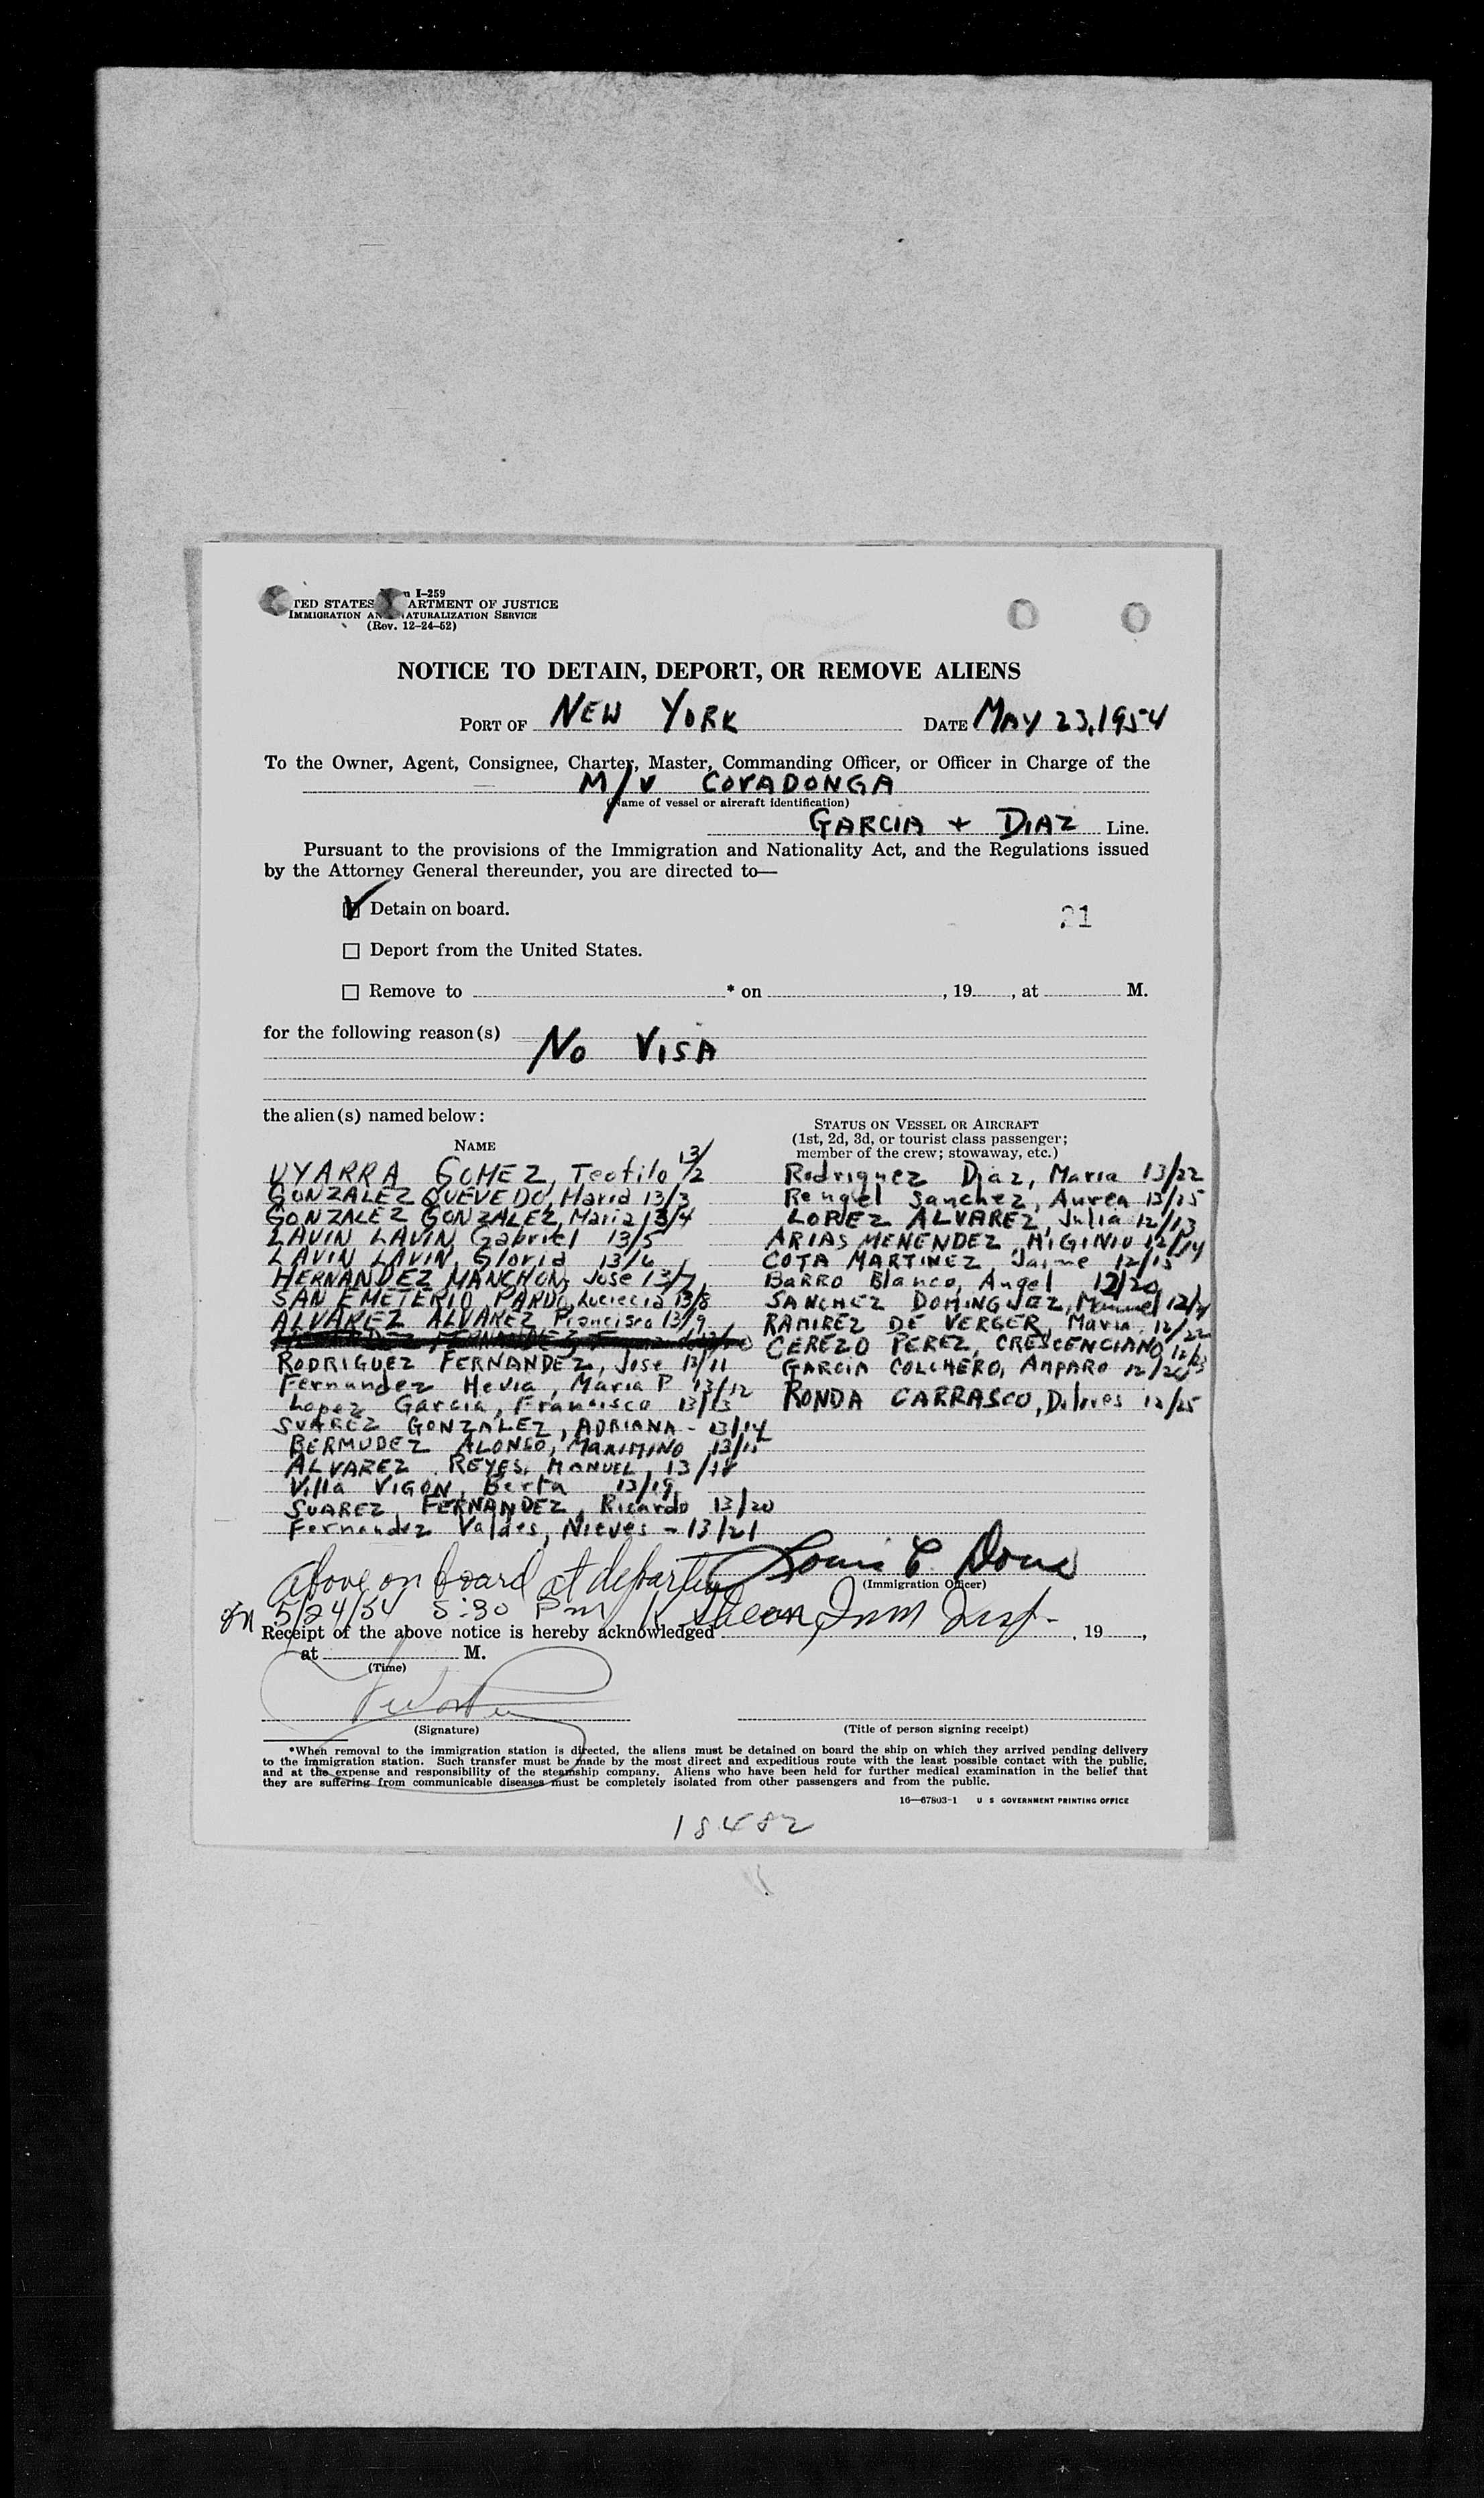 I-259
TED STATES ARTMENT OF JUSTICE
IMMIGRATION AN ATURALIZATION SERVICE
(Rev. 12-24-52)
NOTICE TO DETAIN, DEPORT, OR REMOVE ALIENS
PORT OF NEW YORK DATE MAY 23, 1954
To the Owner, Agent, Consignee, Charter, Master, Commanding Officer, or Officer in Charge of the
M/V COVADONGA
(Name of vessel or aircraft identification)
GARCIA + DIAZ Line.
Pursuant to the provisions of the Immigration and Nationality Act, and the Regulations issued
by the Attorney General thereunder, you are directed to—
Detain on board.
21
Deport from the United States.
Remove to * on , 19 , at M.
for the following reason(s)
No VISA
the alien(s) named below:
STATUS ON VESSEL OR AIRCRAFT
(1st, 2d, 3d, or tourist class passenger;
member of the crew; stowaway, etc.)
NAME
UYARRA GOMEZ, Teofilo 13/2
GONZALEZ QUEVEDO, Maria 13/3
GONZALEZ GONZALEZ, Maria 13/4
LAVIN LAVIN Gabriel 13/5
LAVIN LAVIN, Gloria 13/6
HERNANDEZ MANCHON, Jose 13/7
SAN EMETERIO PARDO, Lucrecia 13/8
ALVAREZ ALVAREZ Francisco 13/9
RODRIGUEZ FERNANDEZ, Jose 13/11
Fernandez Hevia, Maria P 13/12
Lopez Garcia, Francisco 13/13
SUAREZ GONZALEZ, ADRIANA - 13/14
BERMUDEZ ALONSO, MAXIMINO 13/
ALVAREZ REYES, MANUEL, 13/18
Villa VIGON, Berta 13/19
SUAREZ FERNANDEZ, Ricardo 13/20
Fernandez Valdes, Nieves - 13/21
Rodriguez Diaz, Maria 13/22
Rengel Sanchez, Aurea 13/25
LOPEZ ALVAREZ, Julia 12/13
ARIAS MENENDEZ, HIGINIO 12/14
COTA MARTINEZ Jaime 12/15
BARRO Blanco, Angel 12/20
SANCHEZ DOMINGUEZ, Manuel 12/21
RAMIREZ DE VERGER, Maria 12/22
CEREZO PEREZ, CRESCENCIANO 12/23
GARCIA COLCHERO, AMPARO 12/24
RONDA CARRASCO, Dolores 12/25
Above on board at departure
Louis C
(Immigration Officer)
5/24/54 5:30 Pm Imm Insp.
Receipt of the above notice is hereby acknowledged , 19 ,
at M.
(Time)
(Signature)
(Title of person signing receipt)
*When removal to the immigration station is directed, the aliens must be detained on board the ship on which they arrived pending delivery
to the immigration station. Such transfer must be made by the most direct and expeditious route with the least possible contact with the public,
and at the expense and responsibility of the steamship company. Aliens who have been held for further medical examination in the belief that
they are suffering from communicable diseases must be completely isolated from other passengers and from the public.
16—67803-1 U S GOVERNMENT PRINTING OFFICE
18482